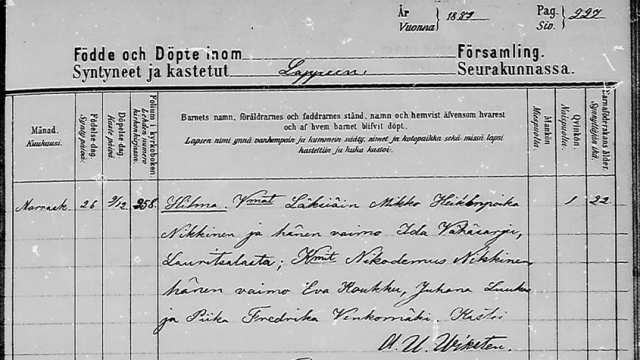 År Vuonna 1887 Pag. Sio. 227
Födde och Döpte inom Församling.
Syntyneet ja kastetut Lappeen Seurakunnassa.
Månad. Kuukausi.
Födelse dag. Synty päivä.
Döpelse dag. Kaste päivä.
Folium i kyrkoboken Lehden numero kirkonkirjassa.
Barnets namn, föräldrarnes och faddrarnes stånd, namn och hemvist äfvensom hvarest
och af hvem barnet blifvit döpt.
Lapsen nimi ynnä vanhempain ja kummein sääty, nimet ja kotopaikka sekä missä lapsi
kastettiin ja kuka kastoi.
Mankön Miespuolta.
Qvinkön. Naispuolta.
Barnaföderskans ålder. Synnyttäjän ikä.
Marrask. 26 2/12 258. Hilma. Vmat Läksiäin Mikko Heikinpoika 1 22
Nikkinen ja hänen vaimo Ida Vähäsarju,
Lauritsalasta; Kmit Nikodemus Nikkinen
hänen vaimo Eva Koukku, Juhana Luukka
ja Piika Fredrika Venkomäki. Kastoi